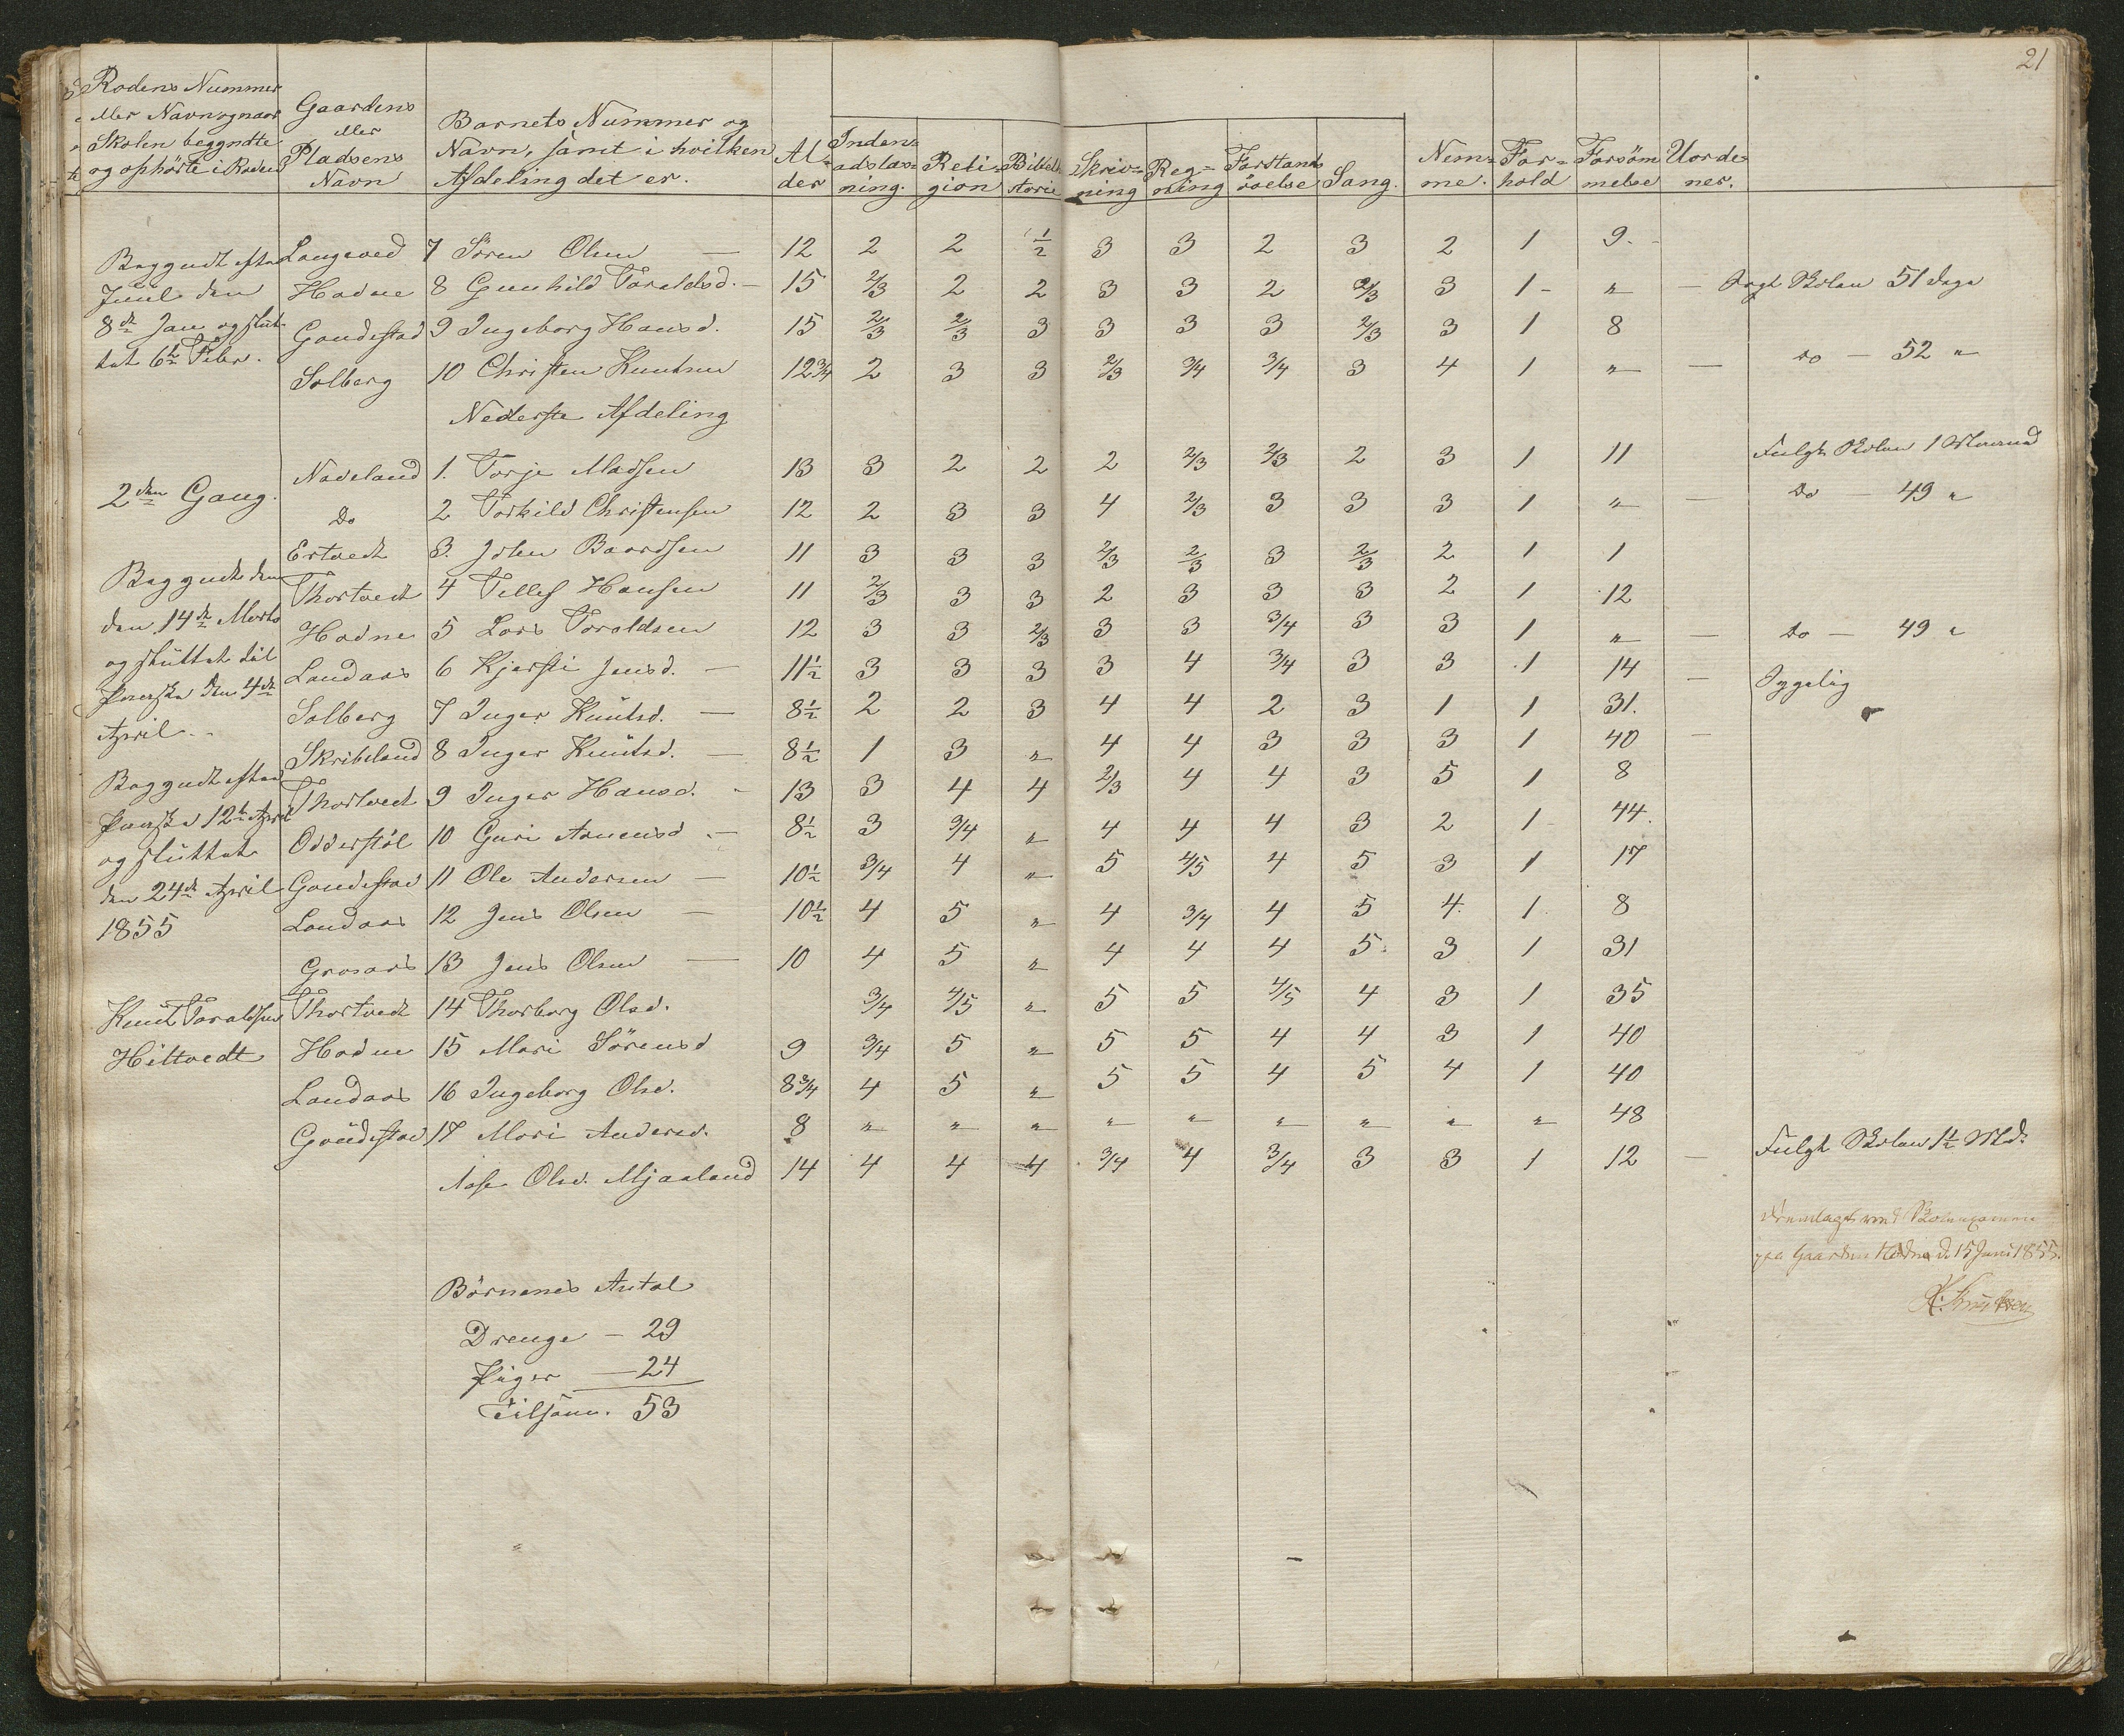 21
Rodens Nummer eller Navn og naar Skolen begyndte og ophörte i Roden | Gaardens eller Pladsens Navn | Barnets Nummer og Navn, samt i hvilken Afdeling det er. | Alder | Indenadslæsning. | Religion | Bibelstorie | Skrivning | Regning | Forstandsövelse | Sang. | Nemme. | Forhold | Forsömmelse | Uordener.
Begyndt efter | Langeved | 7 Sören Olsen — | 12 | 2 | 2 | 1/2 | 3 | 3 | 2 | 3 | 2 | 1 | 9.
Juul den | Hodne | 8 Gunhild Taraldsd. — | 15 | 2/3 | 2 | 2 | 3 | 3 | 2 | 2/3 | 3 | 1 | " | — | Skolen 51 Dage
8de Jan og slut- | Goudestad | 9 Ingeborg Hansd. | 15 | 2/3 | 2/3 | 3 | 3 | 3 | 3 | 2/3 | 3 | 1 | 8
tet 6te Febr. | Solberg | 10 Christen Knutsen | 12 3/4 | 2 | 3 | 3 | 2/3 | 3/4 | 3/4 | 3 | 4 | 1 | " | — | Do — 52 "
Nederste Afdeling
2den Gang. | Naveland | 1. Torje Madsen | 13 | 3 | 2 | 2 | 2 | 2/3 | 2/3 | 2 | 3 | 1 | 11 | Fulgt Skolen 1 Maaned
Do | 2 Torkild Christensen | 12 | 2 | 3 | 3 | 4 | 2/3 | 3 | 3 | 3 | 1 | " | — | Do — 49 "
Ertvedt | 3. John Baardsen | 11 | 3 | 3 | 3 | 2/3 | 2/3 | 3 | 2/3 | 2 | 1 | 1
Begyndt den | Thortvedt | 4 Tellef Hansen | 11 | 2/3 | 3 | 3 | 2 | 3 | 3 | 3 | 2 | 1 | 12
den 14de Marts | Hodne | 5 Lars Taraldsen | 12 | 3 | 3 | 2/3 | 3 | 3 | 3/4 | 3 | 3 | 1 | " | — | Do — 49 "
og sluttet til | Landaas | 6 Kjersti Jensd. — | 11 1/2 | 3 | 3 | 3 | 3 | 4 | 3/4 | 3 | 3 | 1 | 14 | — | Sygelig
Paaske den 4de | Solberg | 7 Inger Knutsd. — | 8 1/2 | 2 | 2 | 3 | 4 | 4 | 2 | 3 | 1 | 1 | 31.
April. | Skribeland | 8 Inger Knutsd. — | 8 1/2 | 1 | 3 | " | 4 | 4 | 3 | 3 | 3 | 1 | 40 | —
Begyndt efter | Thortvedt | 9 Inger Hansd. - | 13 | 3 | 4 | 4 | 2/3 | 4 | 4 | 3 | 5 | 1 | 8
Paaske 12te April | Odderstöl | 10 Guri Aanensd. — | 8 1/2 | 3 | 3/4 | " | 4 | 4 | 4 | 3 | 2 | 1 | 44.
og sluttet | Goudestad | 11 Ole Andersen — | 10 1/2 | 3/4 | 4 | " | 5 | 4/5 | 4 | 5 | 3 | 1 | 17
den 24de April | Landaas | 12 Jens Olsen — | 10 1/2 | 4 | 5 | " | 4 | 3/4 | 4 | 5 | 4. | 1 | 8
1855 | Grosaas | 13 Jens Olsen — | 10 | 4 | 5 | " | 4 | 4 | 4 | 5. | 3 | 1 | 31
Knut Taraldsen | Thortvedt | 14 Thorborg Olsd. | 3/4 | 4/5 | " | 5 | 5 | 4/5 | 4 | 3 | 1 | 35
Hiltvedt | Hodne | 15 Mari Sörensd | 9 | 3/4 | 5 | " | 5 | 5 | 4 | 4 | 3 | 1 | 40
Landaas | 16 Ingeborg Olsd. | 8 3/4 | 4 | 5 | " | 5 | 5 | 4 | 5 | 4 | 1 | 40
Goudestad | 17 Mari Andersd. | 8 | " | " | " | " | " | " | " | " | " | 48
Aase Olsd. Mjaaland | 14 | 4 | 4 | 4 | 3/4 | 4 | 3/4 | 3 | 3 | 1 | 12 | — | Fulgt Skolen 1 1/2 Md.
Fremlagt ved Skoleexamen
paa Gaarden Hodne d. 15 Juni 1855.
Börnenes Antal
Drenge — 29
Piger — 24
Tilsam. 53